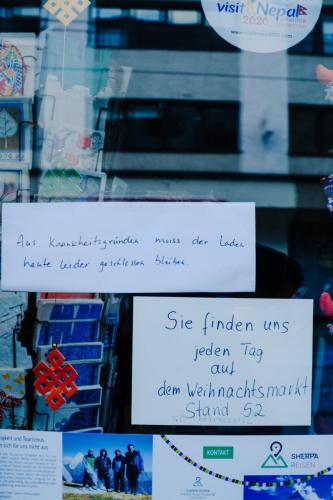 visit Nepal
2020
Aus Krankheitsgründen muss der Laden
heute leider geschlossen bleiben.
Sie finden uns
jeden Tag
auf
dem Weihnachtsmarkt
Stand 52
KONTAKT
SHERPA
REISEN